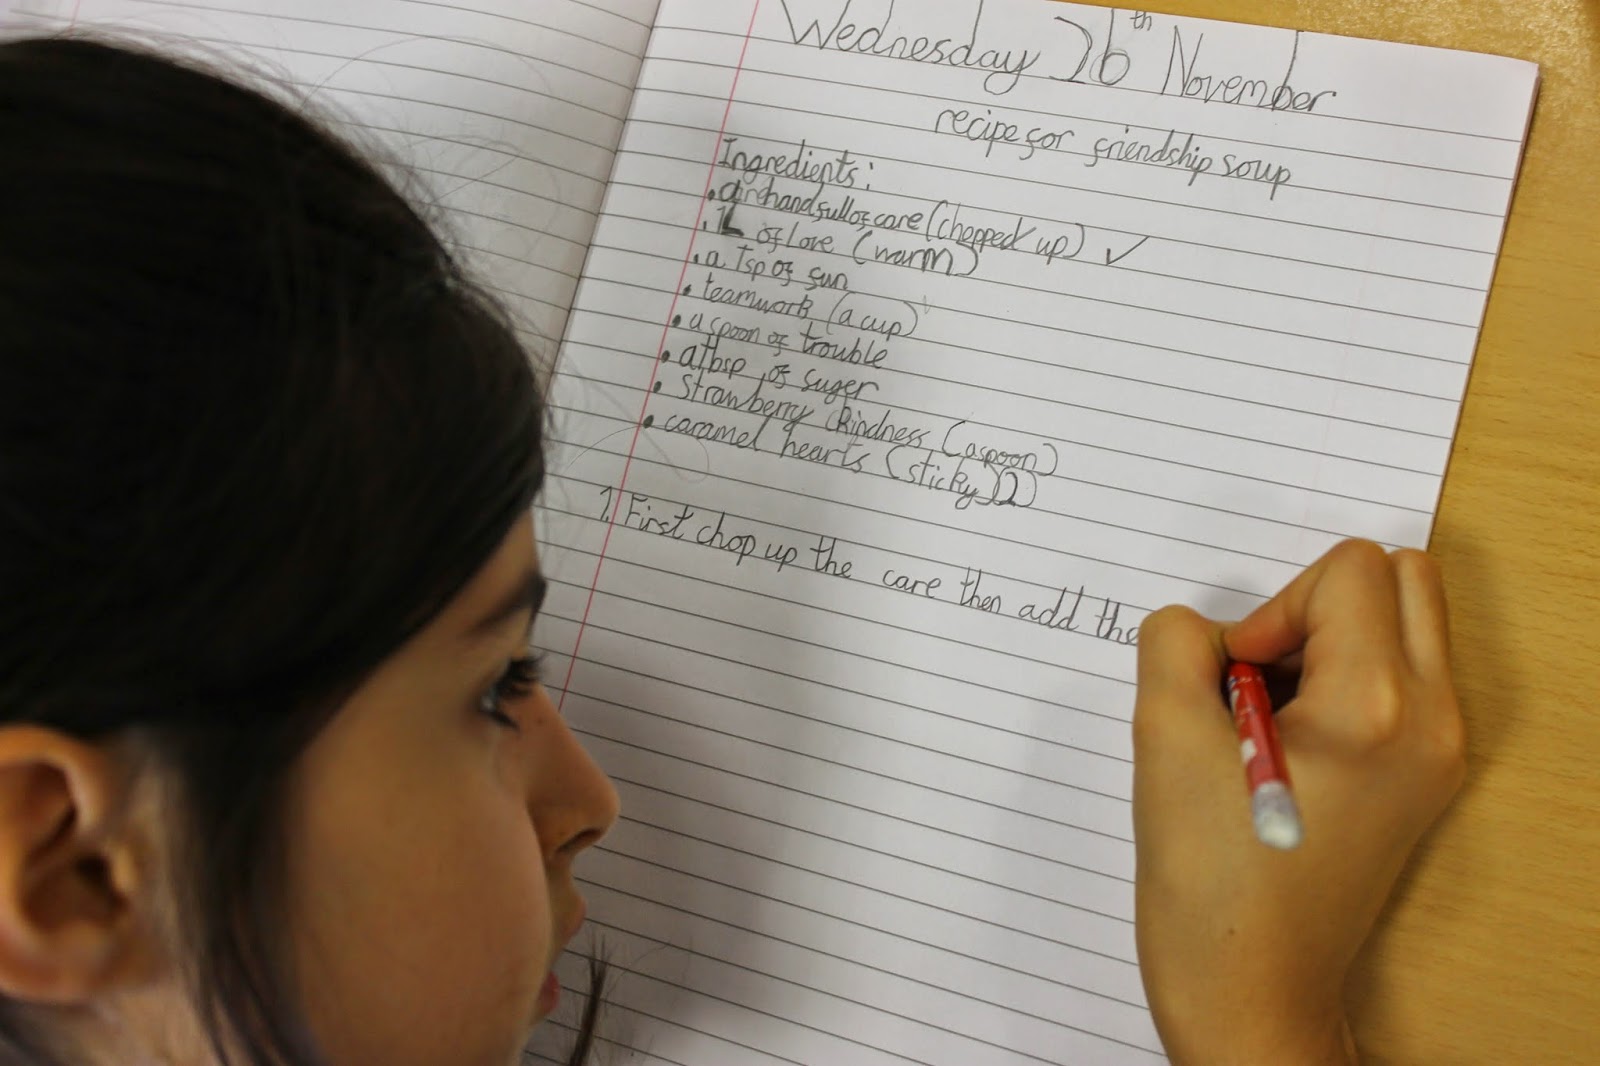 Wednesday 26th November
recipe for friendship soup
Ingredients:
• handfull of care (chopped up) ✓
• 1L of Love (warm)
• a Tsp of fun
• teamwork (a cup)
• a spoon of trouble
• a Tbsp of suger
• Strawberry Kindness (a spoon)
• caramel hearts (sticky) 2)
1. First chop up the care then add the